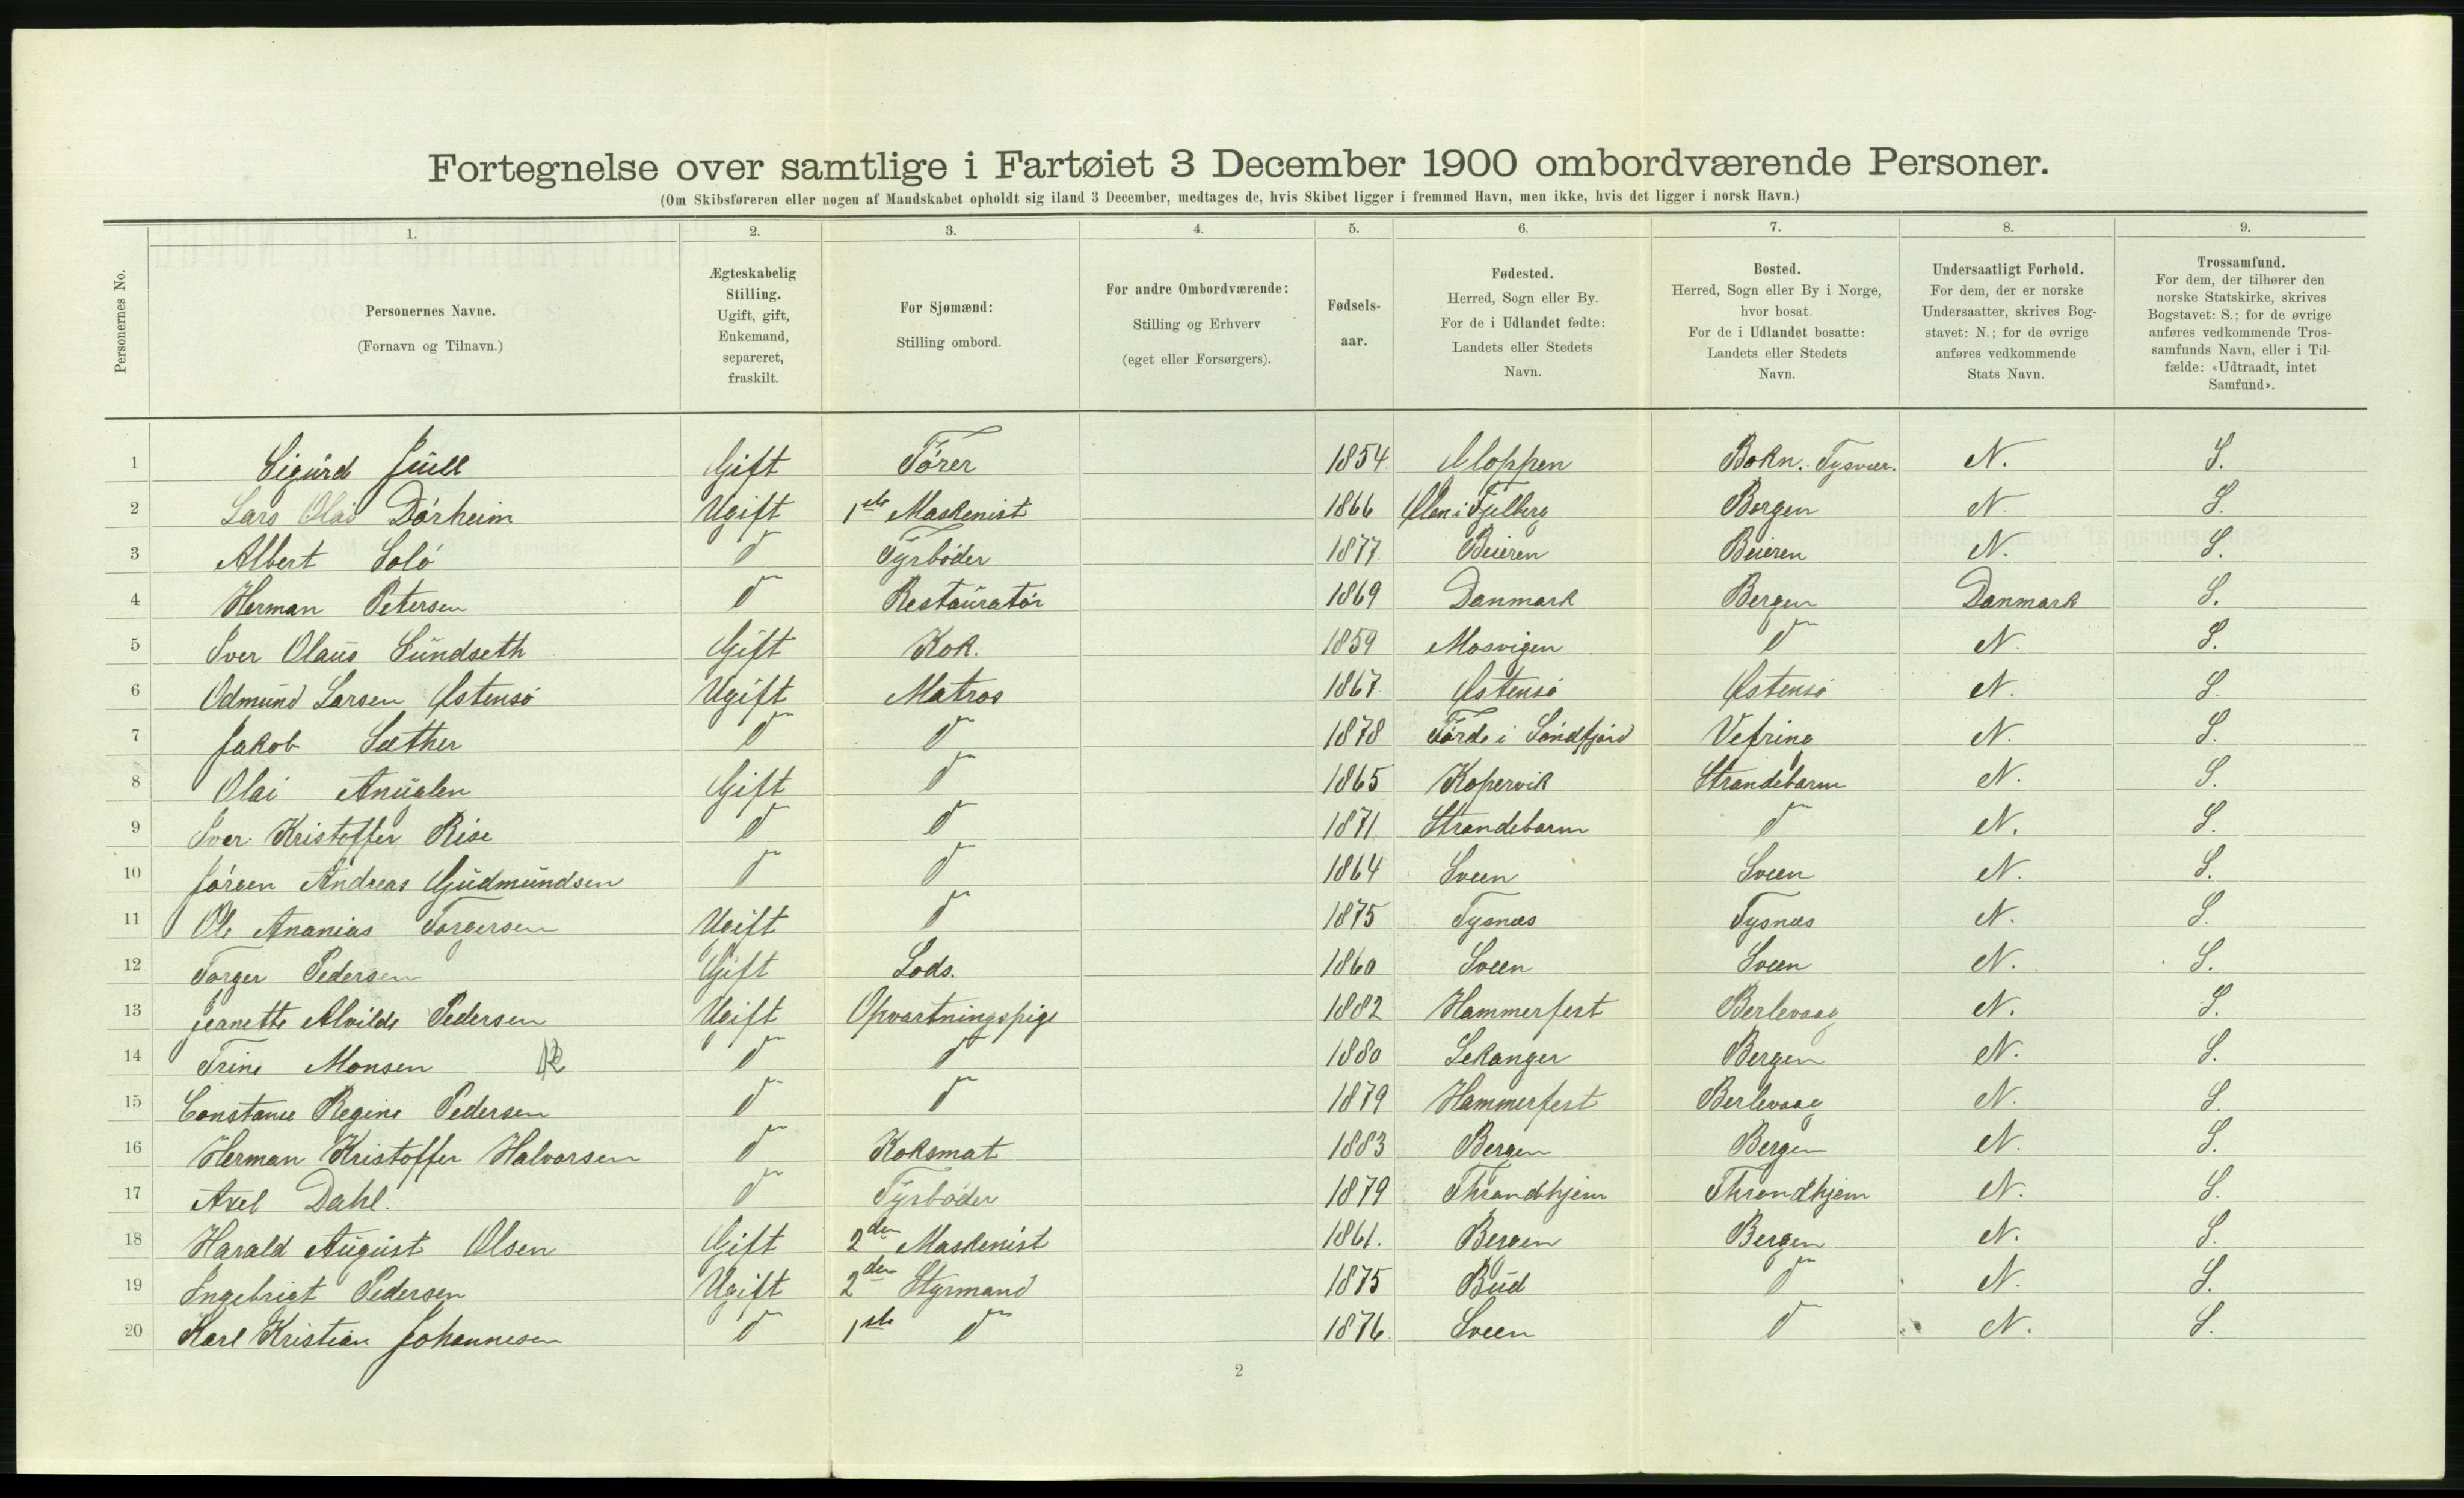 Fortegnelse over samtlige i Fartøiet 3 December 1900 ombordværende Personer.
(Om Skibsføreren eller nogen af Mandskabet opholdt sig iland 3 December, medtages de, hvis Skibet ligger i fremmed Havn, men ikke, hvis det ligger i norsk Havn.)
Personernes No.
1. Personernes Navne. (Fornavn og Tilnavn.)
2. Ægteskabelig Stilling. Ugift, gift, Enkemand, separeret, fraskilt.
3. For Sjømænd: Stilling ombord.
4. For andre Ombordværende: Stilling og Erhverv (eget eller Forsørgers).
5. Fødsels-aar.
6. Fødested. Herred, Sogn eller By. For de i Udlandet fødte: Landets eller Stedets Navn.
7. Bosted. Herred, Sogn eller By i Norge, hvor bosat. For de i Udlandet bosatte: Landets eller Stedets Navn.
8. Undersaatligt Forhold. For dem, der er norske Undersaatter, skrives Bogstavet: N.; for de øvrige anføres vedkommende Stats Navn.
9. Trossamfund. For dem, der tilhører den norske Statskirke, skrives Bogstavet: S.; for de øvrige anføres vedkommende Trossamfunds Navn, eller i Tilfælde: «Udtraadt, intet Samfund».
1 Sigurd Juell Gift Fører 1854 Gloppen Bokn. Tysvær. N. S.
2 Lars Olai Dørheim Ugift 1ste Maskenist 1866 Ølen i Fjelberg Bergen N. S.
3 Albert Solø d Fyrbøder 1877 Beieren Beieren N. S.
4 Herman Petersen d Restauratør 1869 Danmark Bergen Danmark S.
5 Iver Olaus Sundseth Gift Kok. 1859 Mosvigen d N. S.
6 Odmund Larsen Østensø Ugift Matros 1867 Østensø Østensø N. S.
7 Jakob Sæther d d 1878 Førde i Søndfjord Vefring N. S.
8 Olai Gift d 1865 Kopervik Strandebarm N. S.
9 Iver Kristoffer Rise d d 1871 Strandebarm d N. S.
10 Jørgen Andreas Gudmundsen d d 1864 Sveen Sveen N. S.
11 Ole Ananias Torgersen Ugift d 1875 Tysnæs Tysnæs N. S.
12 Torger Pedersen Gift Lods. 1860 Sveen Sveen N. S.
13 Jeanette Alvilde Pedersen Ugift Opvartningspige 1882 Hammerfest Berlevaag N. S.
14 Trine Monsen d d 1880 Lekanger Bergen N. S.
15 Constance Regine Pedersen d d 1879 Hammerfest Berlevaag N. S.
16 Herman Kristoffer Halvorsen d Koksmat 1883 Bergen Bergen N. S.
17 Axel Dahl. d Fyrbøder 1879 Throndhjem Throndhjem N. S.
18 Harald August Olsen Gift 2den Maskenist 1861. Bergen Bergen N. S.
19 Ingebrigt Pedersen Ugift 2den Styrmand 1875 Bud d N. S.
20 Karl Kristian Johannesen d 1ste d 1876 Sveen d N. S.
2